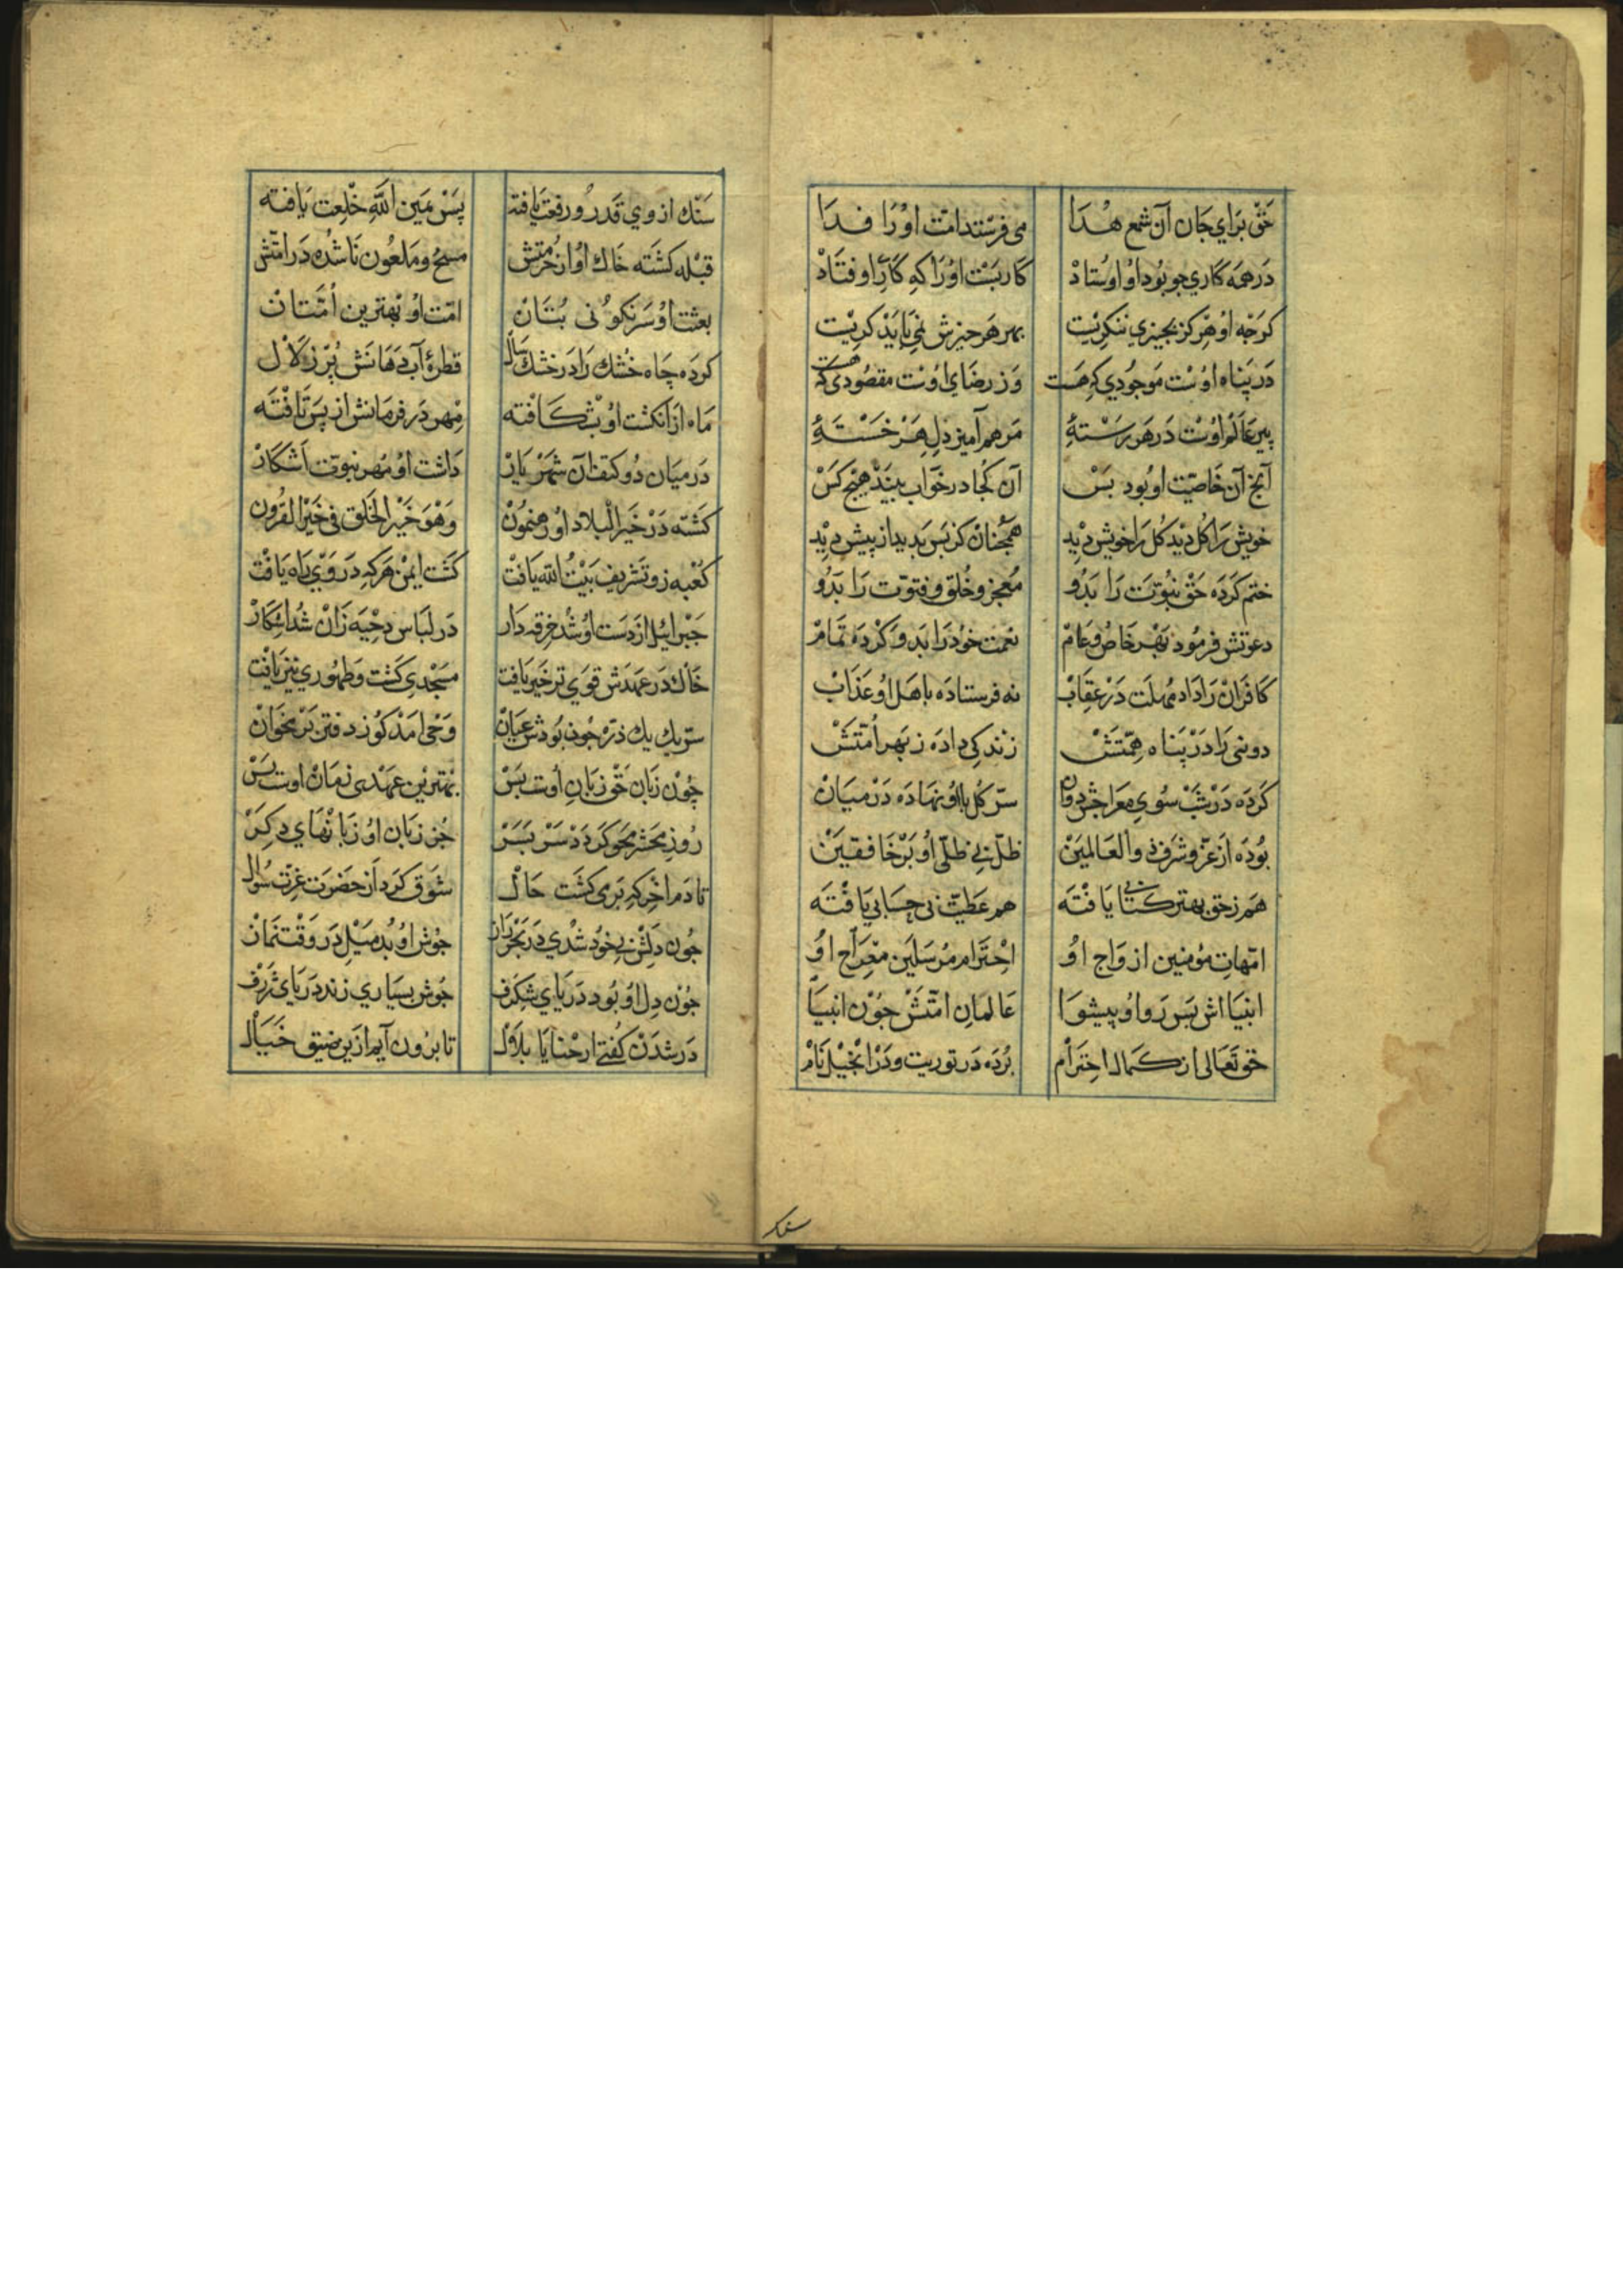 حق براي جان آن شمع هدا می فرستد امت اورا فدا
در همه كاري جو بود او اوستاد كار بست اورا كه كار او فتاد
كرجه او هركز بجيزي ننكريت بهر هر جيزش نمی بايد كريت
در پناه اوست موجودي كه هست وز رضاي اوست مقصودي كه هست
پير عالم اوست در هر رستهٔ مرهم آميز دل هر خستهٔ
آنج آن خاصيت او بود بس آن كجا در خواب بيند هيج كس
خويش را كل ديد كل را خويش ديد همجنان كز پس بديد از پيش ديد
ختم كرده حق نبوت را بدو معجز و خلق و فتوت را بدو
دعوتش فرمود بهر خاص و عام نعمت خود را بدو كرده تمام
كافران را داده مهلت در عقاب نه فرستاده باهل او عذاب
دونی را در پناه همتش زندكی داده ز بهر امتش
كرده در شب سوي معراجش روان سر كل با او نهاده در ميان
بوده از عز و شرف ذو العالمين ظل بی ظلی او بر خافقين
هم ز حق بهتر كتابی يافته هم عطيت بی حسابی يافته
امهات مؤمنين ازواج او احترام مرسلين معراج او
انبيا اش پس رو او پيشوا عالمان امتش جون انبيا
حق تعالی از كمال احترام برده در توريت و در انجيل نام
سنك از وي قدر و رفعت يافته پس يمين الله خلعت يافته
قبله كشته خاك او از حرمتش مسخ و ملعون نا شده در امتش
بعثت او سر نكونی بتان امت او بهترين امتان
كرده چاه خشك را در خشك سال قطرهٔ آب دهانش پر زلال
ماه از انكشت او بشكافته مهر در فرمانش از پس تافته
در ميان دو كتف آن شهريار داشت او مهر نبوت آشكار
كشته در خير البلاد او رهنمون وهو خير الخلق فی خير القرون
كعبه زو تشريف بيت الله يافت كشت ايمن هر كه در وي راه يافت
جبرائيل از دست او شد خرقه دار در لباس دحيه زان شد اشكار
خاك در عهدش قوي تر خير يافت مسجدي كشت و طهوري نيز يافت
سر يك يك ذره جون بودش عيان وحی امد كوز دفتر بر مخوان
چون زبان حق زبان اوست بس بهترين عهدی زمان اوست بس
روز محشر محو كردد سر بسر جز زبان او زبانهاي دكر
تا دم اخر كه بر می كشت حال شوق كرد از حضرت عزت سؤال
جون دلش بی خود شدي در بحر راز جوش او بد ميل در وقت نماز
جون دل او بود درياي شكرف جوش بسياري زند درياي ژرف
در شدن كفتی ارحنا يا بلال تا برون آيم ازين ضيق خيال